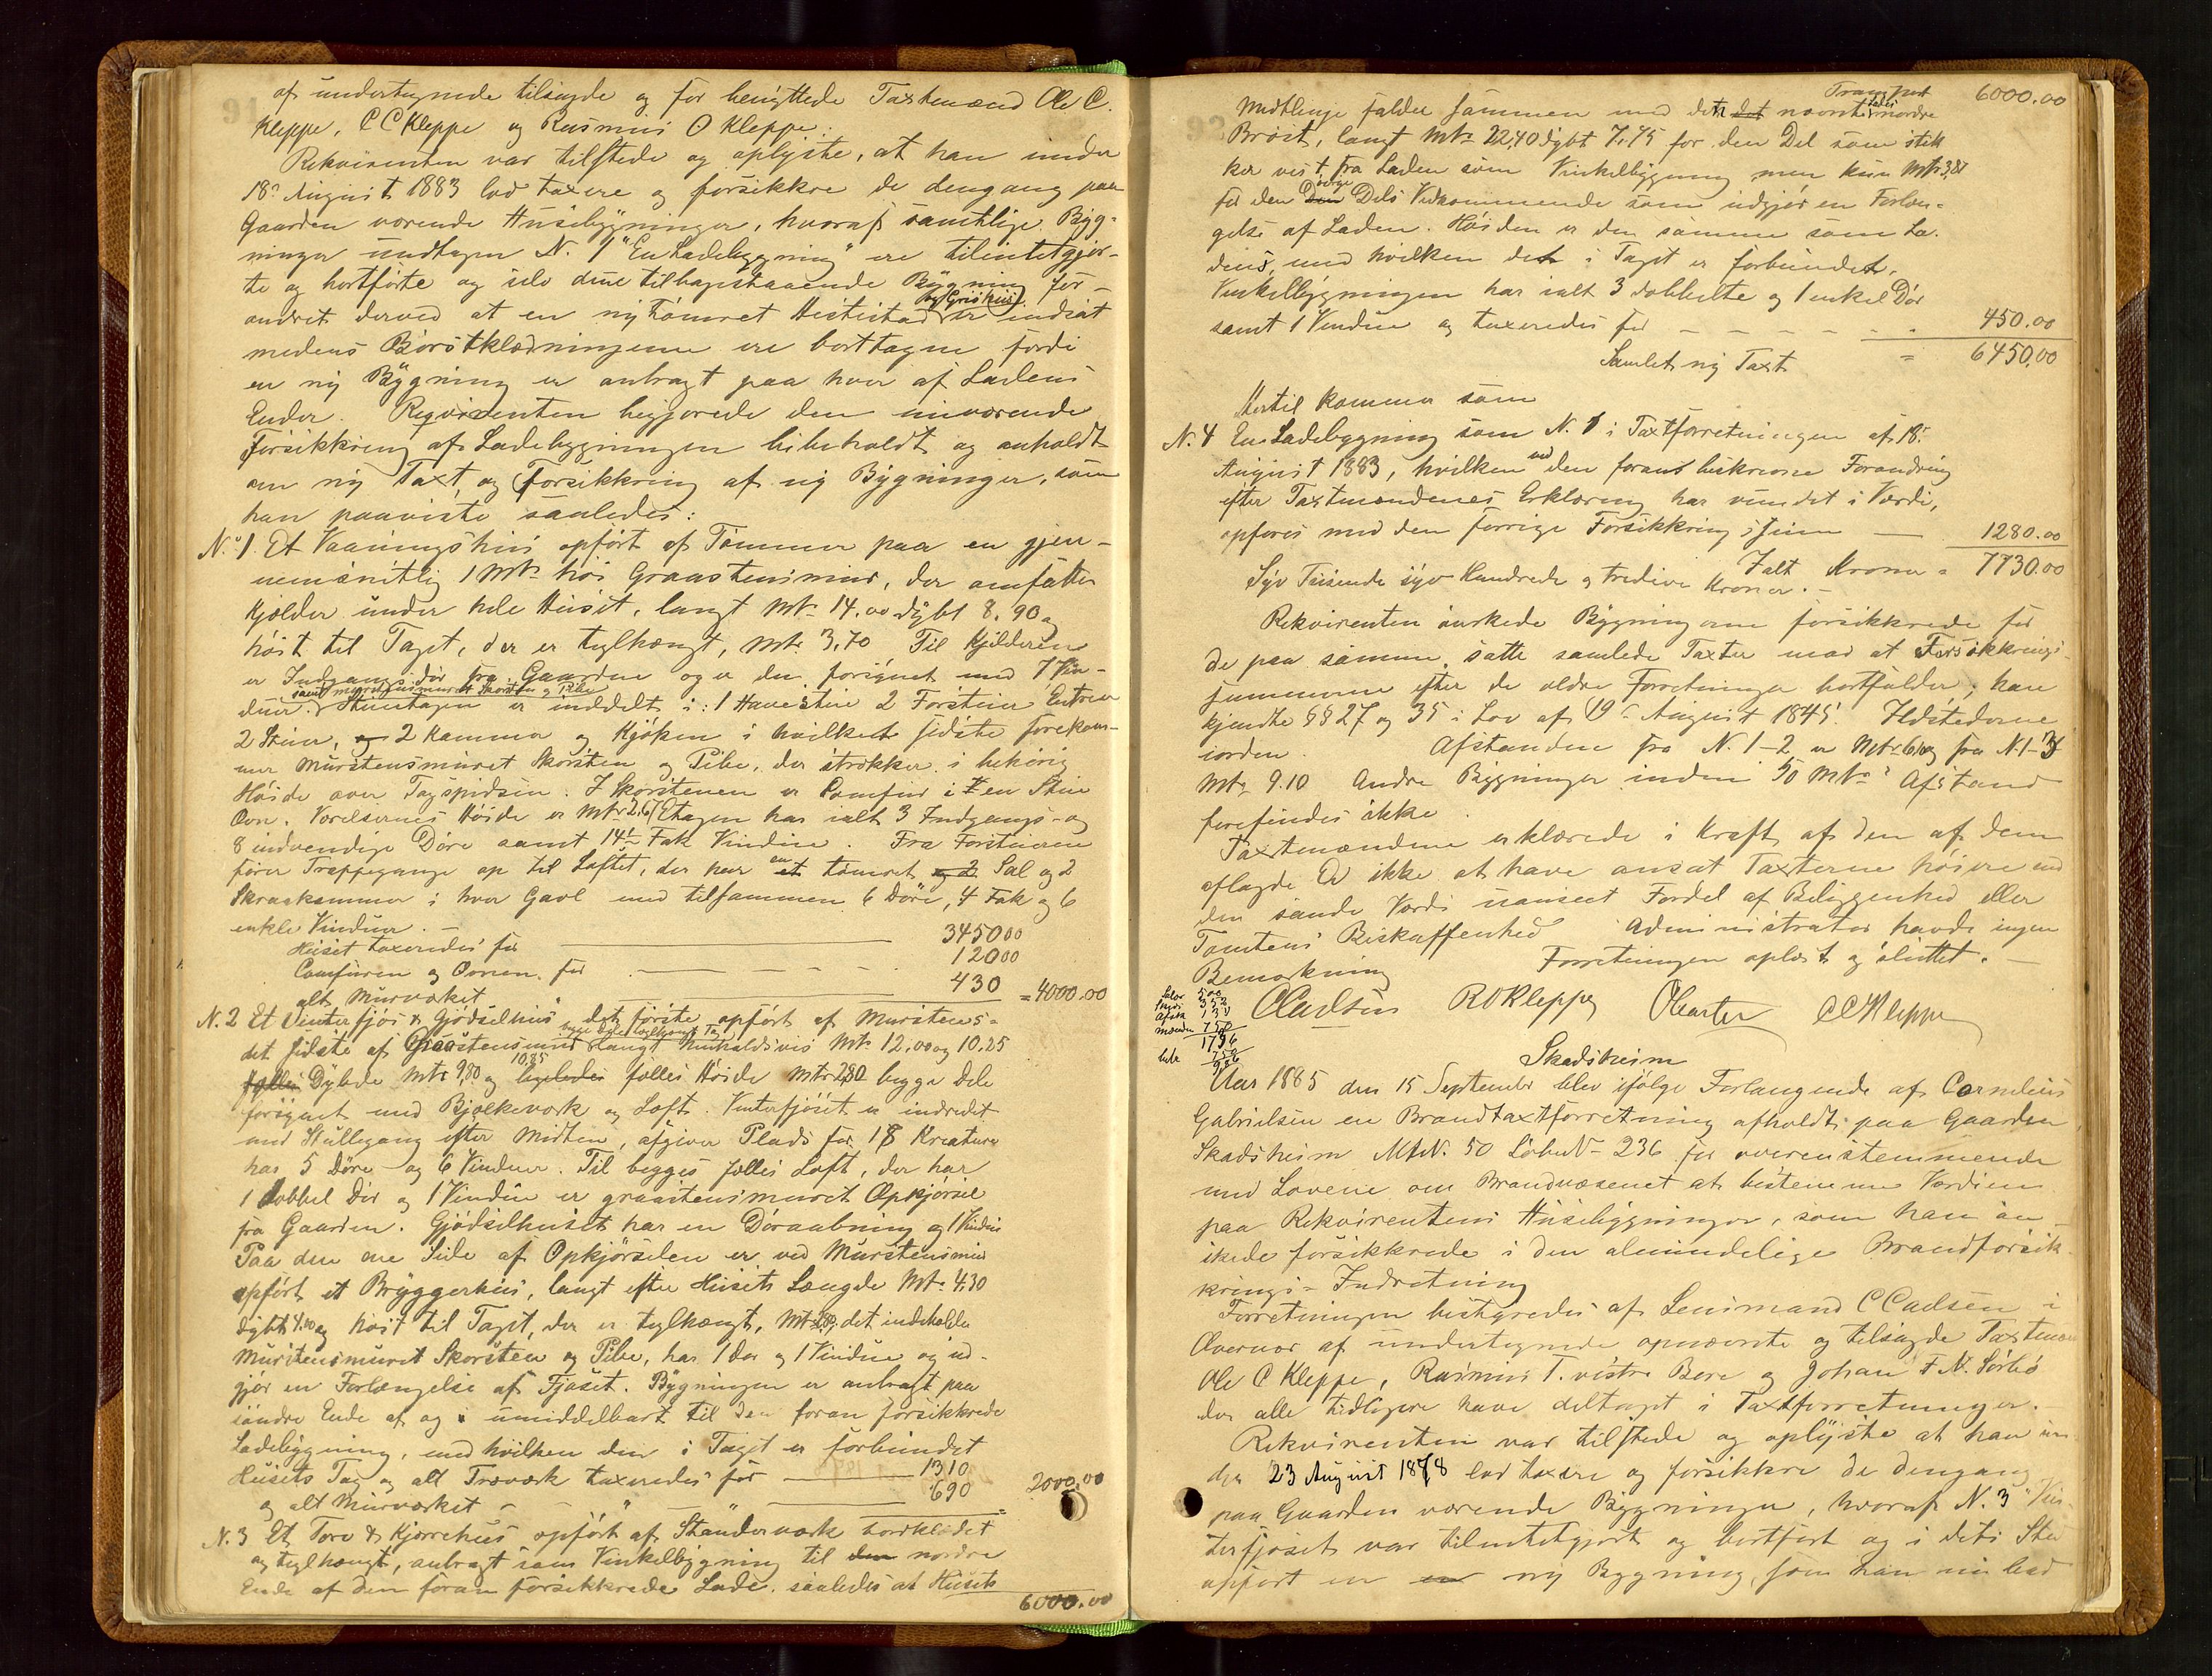 af undertegnede tilsagde og før benyttede Taxtmænd Ole C.
Kleppe, C C Kleppe og Rasmus O Kleppe.
Rekvirenten var tilstede og oplyste, at han under
18de August 1883 lod taxere og forsikkre de dengang paa
Gaarden værende Husebygninger, hvoraf samtlige Byg-
ninger undtagen N. 1 "En Ladebygning" ere tilintetgjor-
te og bortførte og selv den tilbagestaaende Bygning for-
andret derved at en ny tømret Hestestad og Grishus er indsat
medens Børstklædningerne ere borttagne fordi
en ny Bygning er anbragt paa hver af Ladens
Ender. Reqvirenten begjærede den nuværende
Forsikkring af Ladebygningen bibeholdt og anholdt
om ny Taxt og Forsikkring af ny Bygninger, som
han paaviste saaledes:
N. 1 Et Vaaningshus opført af Tømmer paa en gjen-
nemsnitlig 1 Mtr høi Graastensmur, der omfatter
Kjælder under hele Huset, langt Mtr 14.00 dybt 8.90 og
høit til Taget, der er teglhængt, Mtr 3,70 Til Kjælderen
er Indgangsdør fra Gaarden og er den forsynet med 7 Vin-
duer samt murstensmuret Skorsten og Pibe. Stuetagen er inddelt i: 1 Havestue 2 Forstuer Entreer
2 Stuer, 2 Kammer og Kjøken i hvilket sidste forekom-
mer Murstensmuret Skorsten og Pibe, der strækker i behørig
Høide over Tagspidsen. I Skorstenen er Comfur i en Stue
Ovn. Værelsernes Høide er Mtr 2,67 Etagen har ialt 3 Indgangs- og
8 indvendige Døre samt 14 Fak Vinduer. Fra Forstuerne
fører Trappegange op til Loftet, der har en tømret Sal og 2
Skraakammer i hver Gavl med tilsammen 6 Døre, 4 Fak og 6
enkle Vinduer.
Huset taxeredes for 3450 00
Comfuren og Ovnen for 120 00
alt Murværket 430 = 4000.00
N. 2 Et Vinterfjøs & Gjødselhus det første opført af Mursten
det sidste af Graastensmur begge Dele teglhængt Tag Langt henholdsvis Mtr 12,00 og 10.25
Dybde Mtr 9,80 og 10,85 ligeledes fælles Høide Mtr 2,80 begge Dele
forsynet med Bjælkeværk og Loft. Vinterfjøset er indredet
med Stullegang efter Midten, afgiver Plads for 18 Kreature
har 5 Døre og 6 Vinduer. Til begges fælles Loft, der har
1 dobbel Dør og 1 Vindue er graastensmuret Opkjørsel
fra Gaarden. Gjødselhuset har en Døraabning og 1 Vindue
Paa den ene Side af Opkjørselen er ved Murstensmur
opført et Bryggerhus, langt efter Husets Længde Mtr 4.30
dybt 4.00 og høit til Taget, der er teglhængt, Mtr 2,80, det indeholder
Murstensmuret Skorsten og Pibe, har 1 Dør og 1 Vindue og ud-
gjør en Forlængelse af Fjøset. Bygningen er anbragt paa
søndre Ende af og umiddelbart til den foran forsikkrede
Ladebygning, med hvilken den i Taget er forbundet
Husets Tag og alt Træværk taxeredes for 1310
og alt Murværket 690 2000.00
N. 3 Et Torv & Kjørrehus opført af Stænderværk bordklædet
og teglhængt, anbragt som Vinkelbygning til nordre
Ende af den foran forsikkrede Lade, saaledes at Husets
6000.00
Transport 6000.00
Mødtlinje falder sammen med det næste Lades nordre
Brøst, langt Mtr 22,40 dybt 7.75 for den Del som stik
ker vest fra Laden som Vinkelbygning men kun Mtr 3,81
for den øvrige Dels Vedkommende som udgjør en Forlæn-
gelse af Laden. Høiden er den samme som La-
dens, med hvilken det i Taget er forbundet.
Vinkelbygningen har ialt 3 dobbelte og 1 enkel Dør
samt 1 Vindue og taxeredes for 450.00
Samlet ny Taxt = 6450.00
Hertil kommer som
N. 4 En Ladebygning som N. 1 i Taxtforretningen af 18.
August 1883, hvilken ved den forans beskrevne Forandring
efter Taxtmændenes Erklæring har vundet i Værdi,
opføres med den forrige Forsikkringssum 1280.00
Ialt Kroner = 7730.00
Syv Tusende syv Hundrede og tredive Kroner.
Rekvirenten ønskede Bygningerne forsikkrede for
de paa samme satte samlede Taxter mod at Forsikkrings-
summerne efter de ældre Forretninger bortfalder; han
kjendte §§ 27 og 35 i Lov af 19de August 1845. Ildstederne
iorden. Afstanden fra N. 1-2 er Mtr 6,10 og fra N. 1-3
Mtr 9.10 Andre Bygninger inden 50 Mtrs Afstand
forefindes ikke.
Taxtmændene erklærede i Kraft af den af dem
aflagde Ed ikke at have ansat Taxterne høiere end
den sande Værdi uanseet Fordel af Beliggenhed eller
Tomtens Beskaffenhed Administrator havde ingen
Bemærkning Forretningen oplæst og sluttet.
CCadsen ROKleppe OCarter CCKleppe
Skadsheim
Aar 1885 den 15 September blev ifølge Forlangende af Cornelius
Gabrielsen en Brandtaxtforretning afholdt paa Gaarden
Skadsheim MtN. 50 LøbeN- 236 for overenstemmende
med Lovene om Brandvæsenet at bestemme Værdien
paa Rekvirentens Husebygninger, som han øn-
skede forsikkrede i den almindelige Brandforsik-
krings-Indretning
Forretningen bestyredes af Lensmand C Cadsen i
Overvær af undertegnede opnævnte og tilsagde Taxtmæn
Ole C Kleppe, Rasmus T. vestre Bore og Johan F. N. Sørbø
der alle tidligere have deltaget i Taxtforretninger.
Rekvirenten var tilstede og oplyste at han un-
der 23 August 1878 lod taxere og forsikkre de dengang
paa Gaarden værende Bygninger, hvoraf N. 3 "Vin-
terfjøset var tilintetgjort og bortført og i dets Sted
opført en ny Bygning, som han nu bad